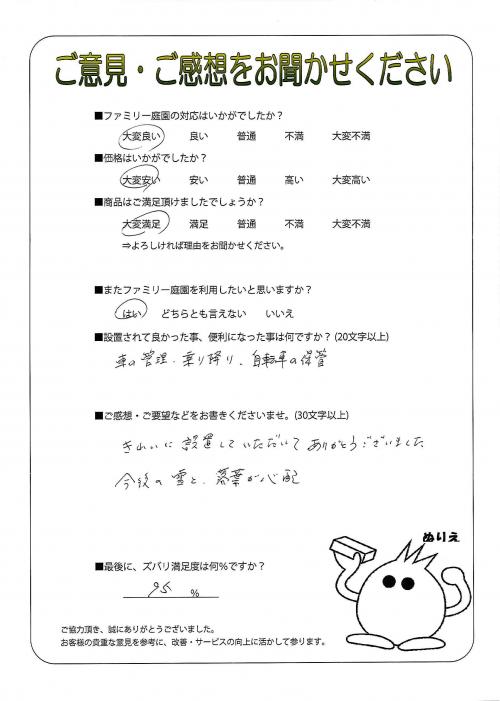 ご意見・ご感想をお聞かせください
■ファミリー庭園の対応はいかがでしたか？
大変良い 良い 普通 不満 大変不満
■価格はいかがでしたか？
大変安い 安い 普通 高い 大変高い
■商品はご満足頂けましたでしょうか？
大変満足 満足 普通 不満 大変不満
⇒よろしければ理由をお聞かせください。
■またファミリー庭園を利用したいと思いますか？
はい どちらとも言えない いいえ
■設置されて良かった事、便利になった事は何ですか？(20文字以上)
車の管理、乗り降り、自転車の保管
■ご感想・ご要望などをお書きくださいませ。(30文字以上)
きれいに設置していただいてありがとうございました
今後の雪と、落葉が心配
ぬりえ
■最後に、ズバリ満足度は何％ですか？
95 ％
ご協力頂き、誠にありがとうございました。
お客様の貴重な意見を参考に、改善・サービスの向上に活かして参ります。